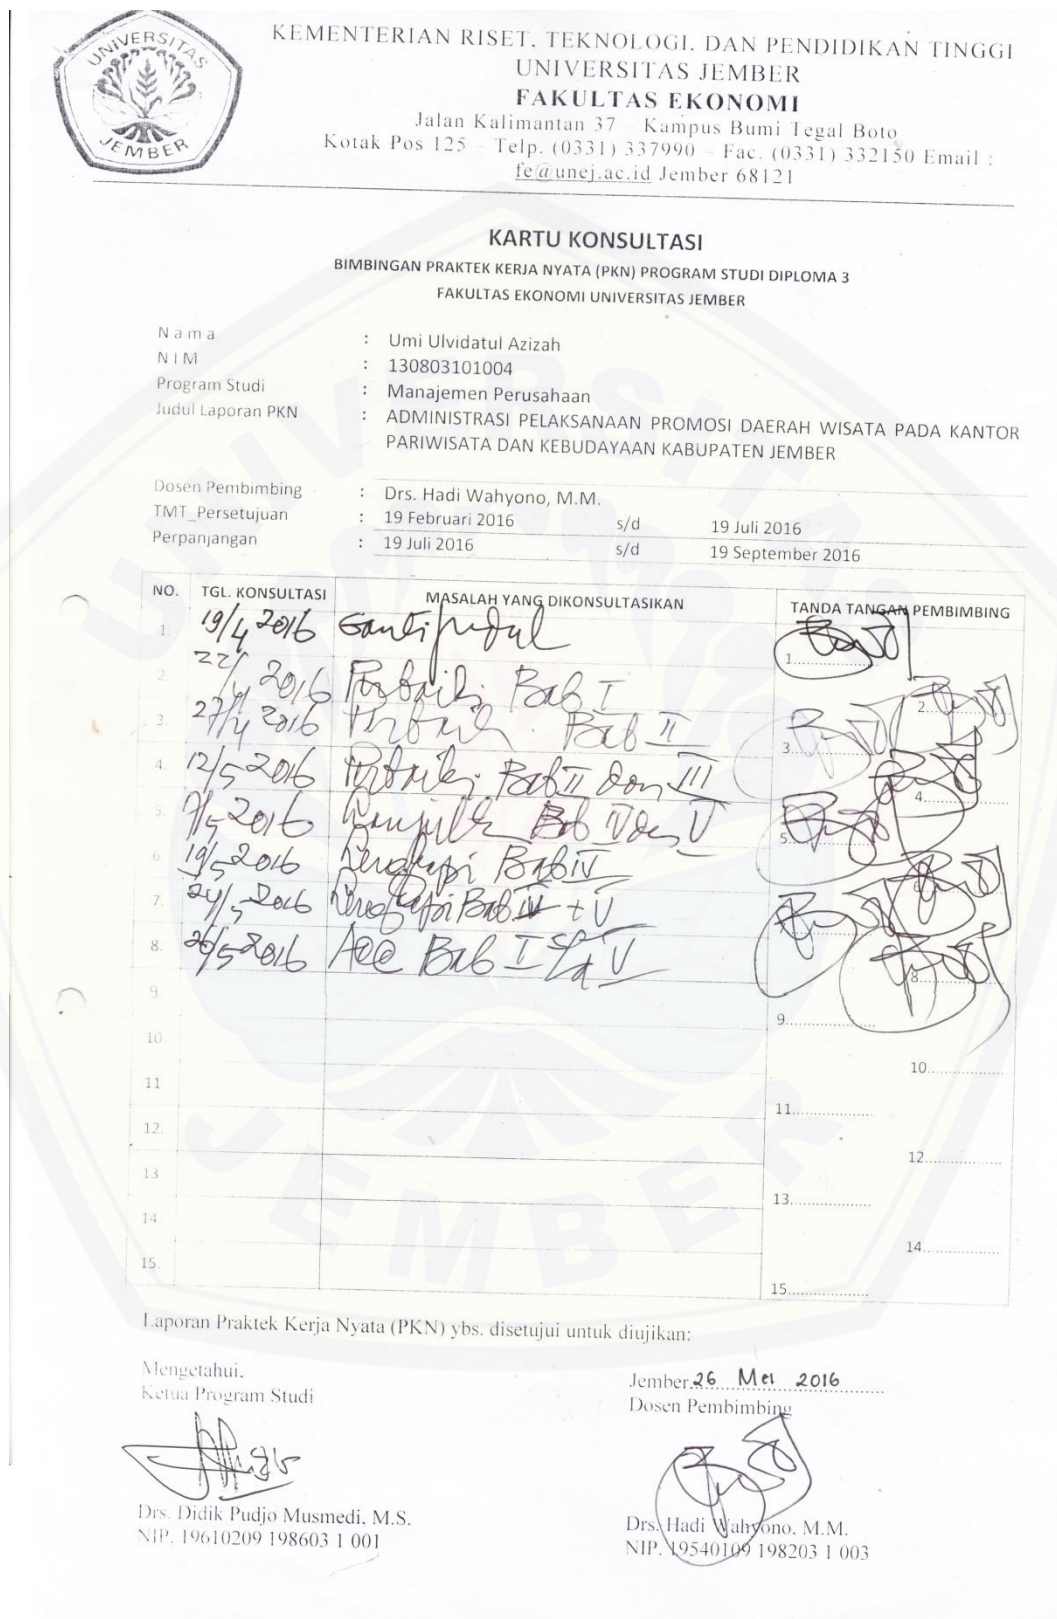 UNIVERSITAS
JEMBER
KEMENTERIAN RISET, TEKNOLOGI, DAN PENDIDIKAN TINGGI
UNIVERSITAS JEMBER
FAKULTAS EKONOMI
Jalan Kalimantan 37 – Kampus Bumi Tegal Boto
Kotak Pos 125 – Telp. (0331) 337990 – Fac. (0331) 332150 Email :
fe@unej.ac.id Jember 68121
KARTU KONSULTASI
BIMBINGAN PRAKTEK KERJA NYATA (PKN) PROGRAM STUDI DIPLOMA 3
FAKULTAS EKONOMI UNIVERSITAS JEMBER
N a m a : Umi Ulvidatul Azizah
N I M : 130803101004
Program Studi : Manajemen Perusahaan
Judul Laporan PKN : ADMINISTRASI PELAKSANAAN PROMOSI DAERAH WISATA PADA KANTOR
PARIWISATA DAN KEBUDAYAAN KABUPATEN JEMBER
Dosen Pembimbing : Drs. Hadi Wahyono, M.M.
TMT_Persetujuan : 19 Februari 2016 s/d 19 Juli 2016
Perpanjangan : 19 Juli 2016 s/d 19 September 2016
NO. TGL. KONSULTASI MASALAH YANG DIKONSULTASIKAN TANDA TANGAN PEMBIMBING
1. 19/4 2016 Ganti judul 1..............
2. 22/4 2016 Perbaiki Bab I 2..............
3. 27/4 2016 Perbaiki Bab II 3..............
4. 12/5 2016 Perbaiki Bab II dan III 4..............
5. 2016 Bab IV dan V 5..............
6. 19/5 2016 Lengkapi Bab IV 6..............
7. 24/5 2016 Lengkapi Bab IV + V
8. 26/5 2016 Acc Bab I s/d V 8..............
9. 9..............
10 10..............
11 11..............
12. 12..............
13 13..............
14 14..............
15. 15..............
Laporan Praktek Kerja Nyata (PKN) ybs. disetujui untuk diujikan:
Mengetahui,
Ketua Program Studi
Jember, 26 Mei 2016
Dosen Pembimbing
Drs. Didik Pudjo Musmedi, M.S.
NIP. 19610209 198603 1 001
Drs. Hadi Wahyono, M.M.
NIP. 19540109 198203 1 003